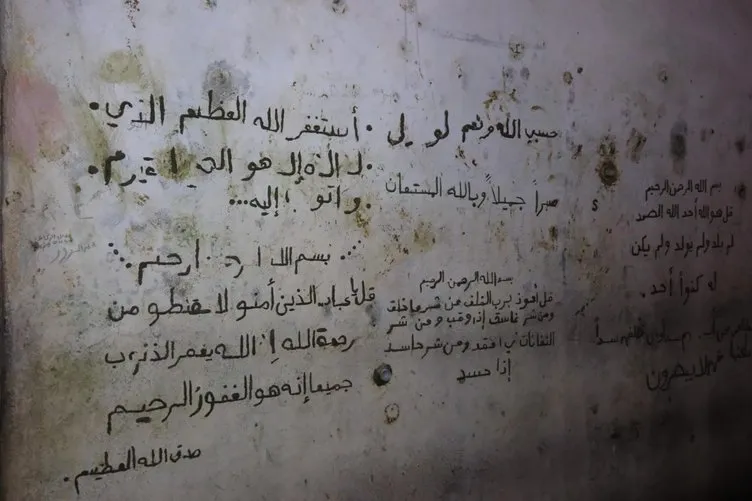 بسم الله الرحمن الرحيم
قل هو الله أحد الله الصمد
لم يلد ولم يولد ولم يكن
له كنوأ أحد.
فهم لا يبصرون
حسبي الله ونعم لو يل
صبراً جميلاً وبالله المستعان
بسم الله الرحمن الرحيم
قل أعوذ برب الفلق من شر ما خلق
ومن شر غاسق إذا وقب ومن شر
النفاثات في العقد ومن شر حاسد
إذا حسد
• أستغفر الله العظيم الذي •
هو الحي
إليه...
بسم الله
قل يا عباد الذين أمنو لا تقنطو من
رحمة الله إن الله يغفر الذنوب
جميعا إنه هو الغفور الرحيم
صدق الله العظيم.